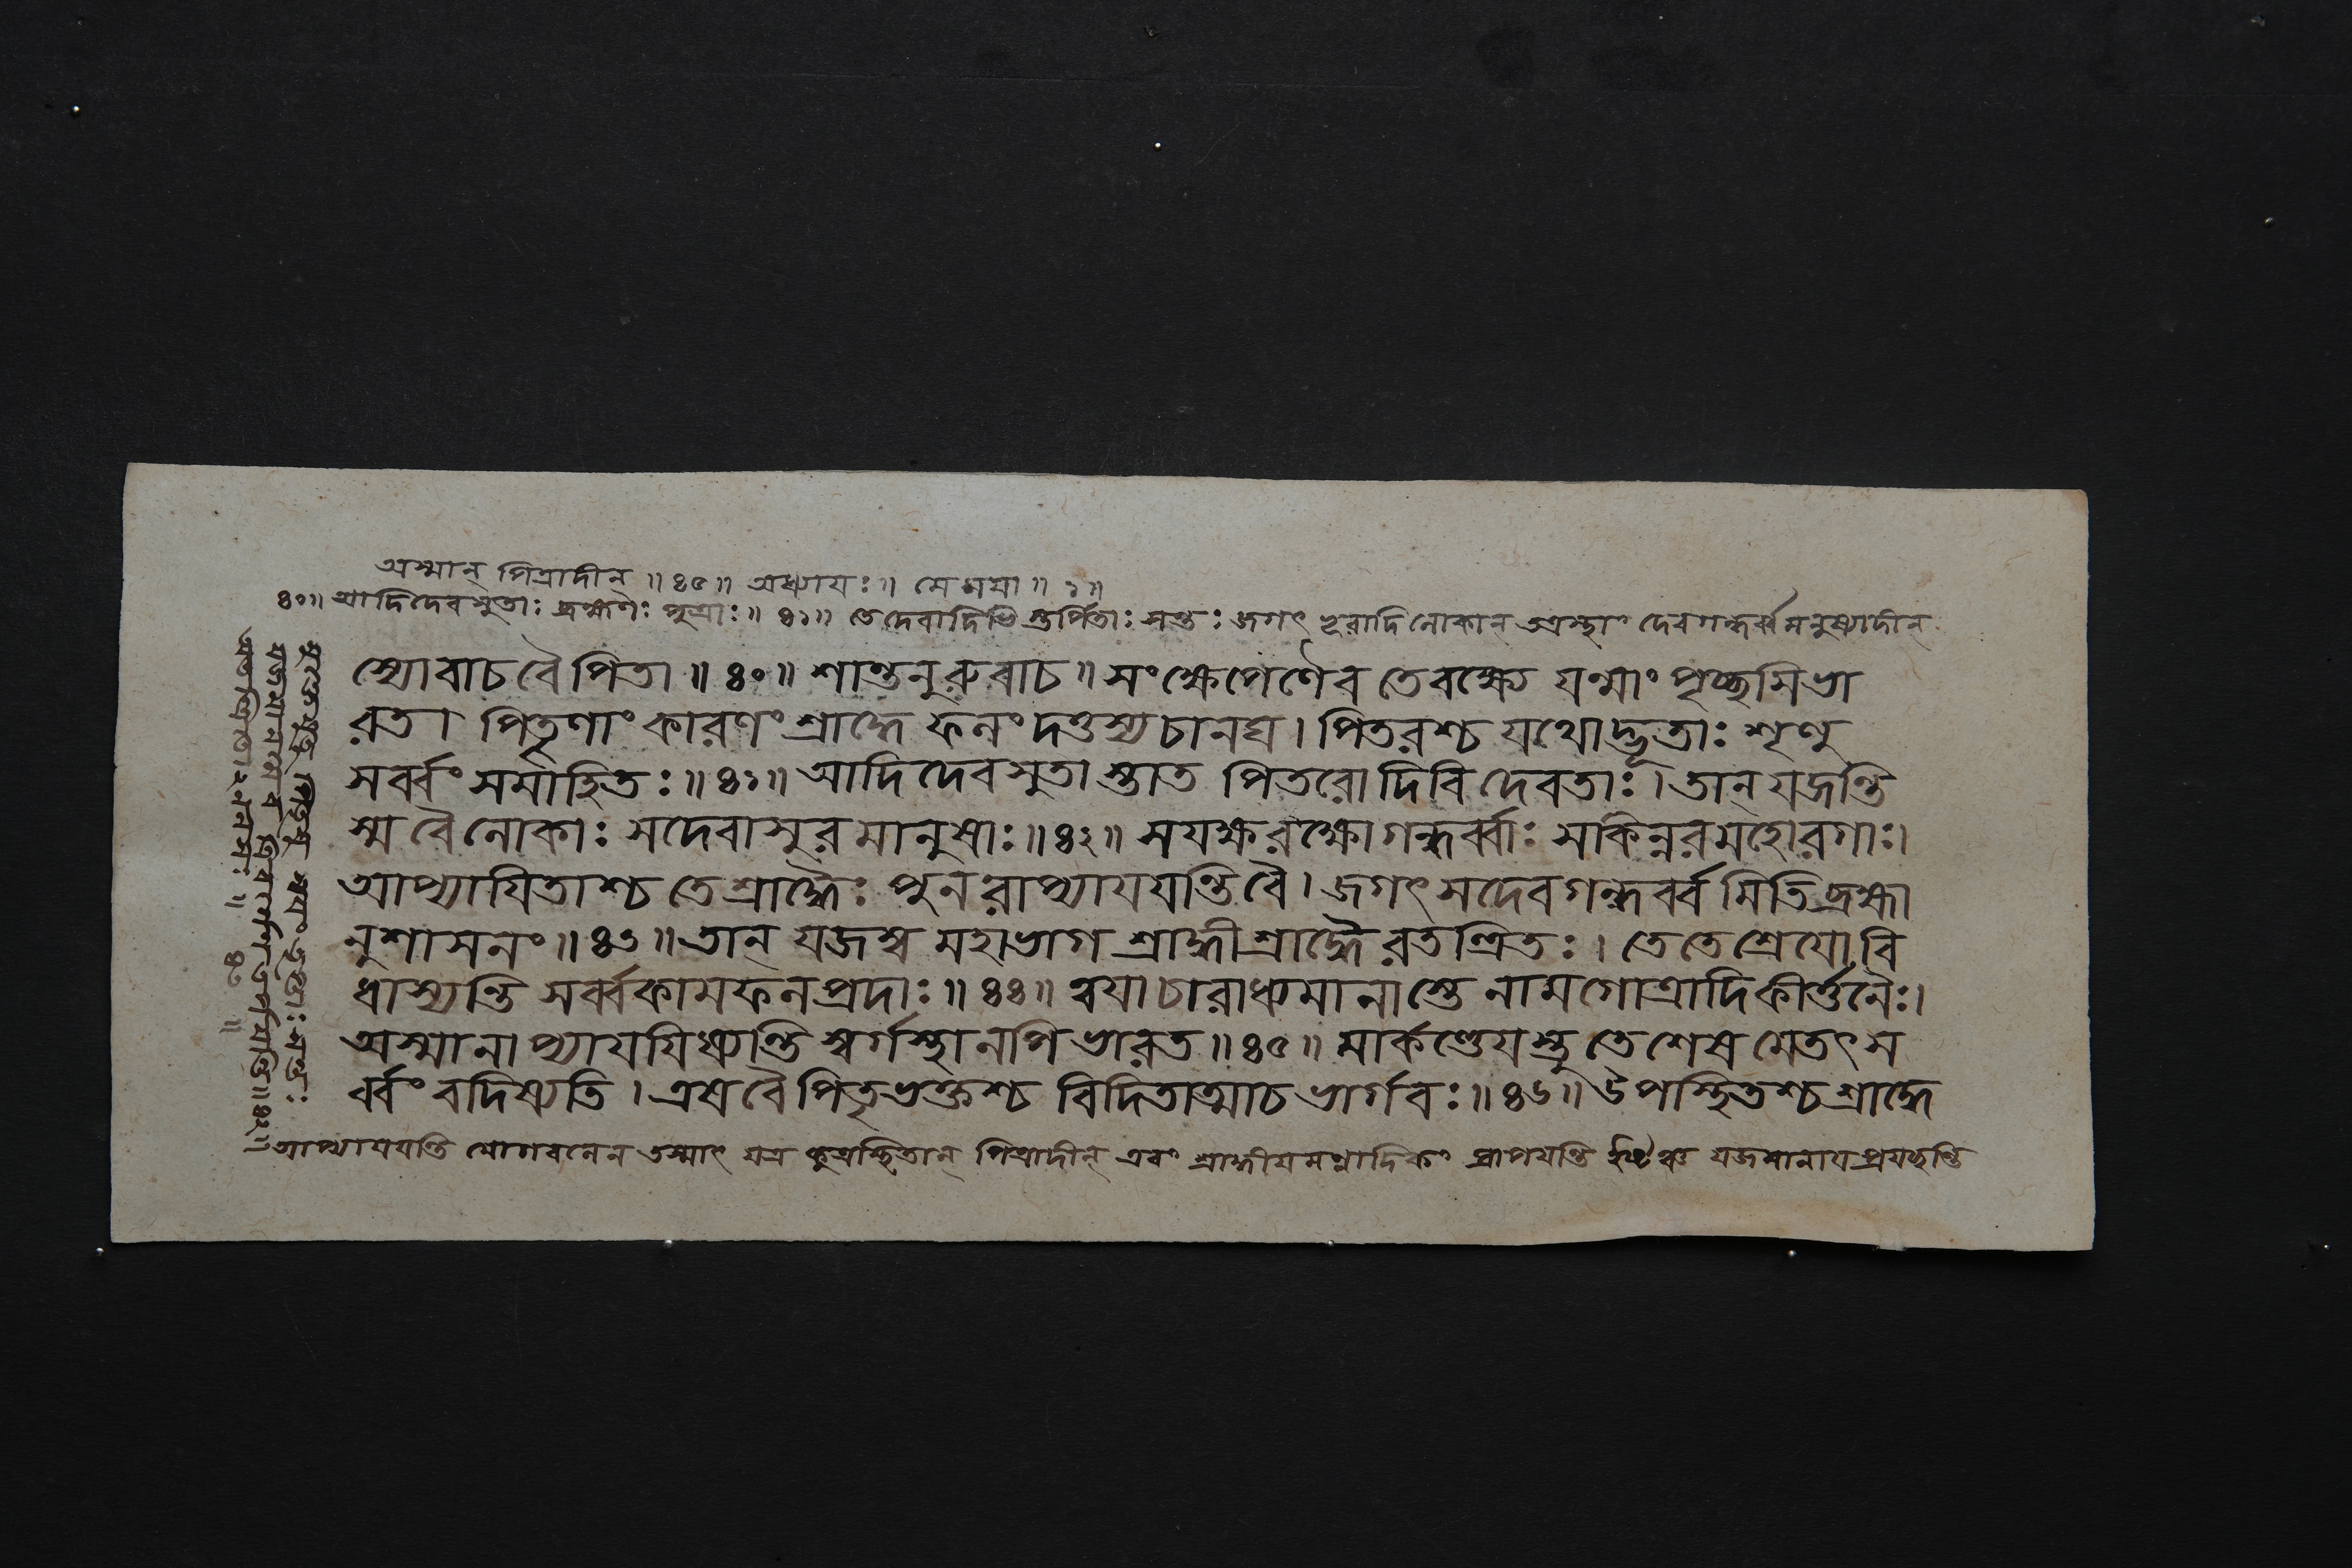 অস্মান্ পিত্রাদীন্ ॥ ৪৫ ॥ অধ্যায়ঃ ॥ মে ময়া ॥ ১ ॥
৪০ ॥ আদিদেবসুতাঃ ব্রহ্মণঃ পুত্রাঃ ॥ ৪১ ॥ তে দেবাদিভিস্তর্পিতাঃ সন্তঃ জগৎ ভূরাদিলোকান্ দেবগন্ধর্ব্বমনুষ্যাদীন্
স্যোবাচ বৈ পিতা ॥ ৪০ ॥ শান্তনুরুবাচ ॥ সংক্ষেপেণৈব তে বক্ষ্যে যন্মাং পৃচ্ছসি ভা
রত । পিতৄণাং কারণং শ্রাদ্ধে ফলং দত্তস্য চানঘ । পিতরশ্চ যথোদ্ভূতাঃ শৃণু
সর্ব্বং সমাহিতঃ ॥ ৪১ ॥ আদিদেবসুতাস্তাত পিতরো দিবি দেবতাঃ । তান্ যজন্তি
স্ম বৈ লোকাঃ সদেবাসুরমানুষাঃ ॥ ৪২ ॥ সযক্ষরক্ষোগন্ধর্ব্বাঃ সকিন্নরমহোরগাঃ ।
আপ্যায়িতাশ্চ তে শ্রাদ্ধৈঃ পুনরাপ্যায়য়ন্তি বৈ । জগৎ সদেবগন্ধর্ব্বমিতি ব্রহ্মা
নুশাসনং ॥ ৪৩ ॥ তান্ যজস্ব মহাভাগ শ্রাদ্ধী শ্রাদ্ধৈরতন্দ্রিতঃ । তে তে শ্রেয়ো বি
ধাস্যন্তি সর্ব্বকামফলপ্রদাঃ ॥ ৪৪ ॥ ত্বয়া চারাধ্যমানাস্তে নামগোত্রাদিকীর্ত্তনৈঃ ।
অস্মানাপ্যায়য়িষ্যন্তি স্বর্গস্থানপি ভারত ॥ ৪৫ ॥ মার্কণ্ডেয়স্তু তে শেষমেতৎ স
র্ব্বং বদিষ্যতি । এষ বৈ পিতৃভক্তশ্চ বিদিতাত্মা চ ভার্গবঃ ॥ ৪৬ ॥ উপস্থিতশ্চ শ্রাদ্ধে
আপ্যায়য়ন্তি যোগবলেন তস্মাৎ যত্র কুত্রস্থিতান্ পিত্রাদীন্ এবং শ্রাদ্ধীয়মন্নাদিকং প্রাপয়ন্তি যজমানায় প্রযচ্ছন্তি